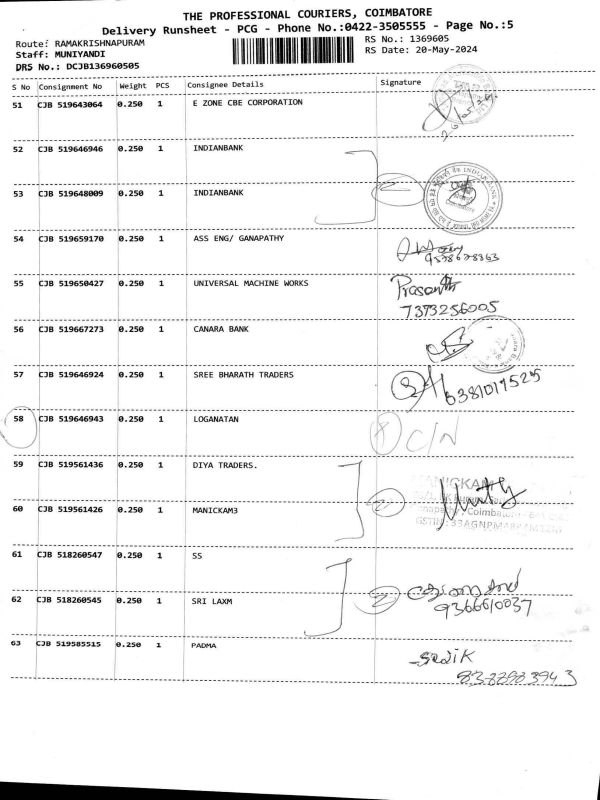 THE PROFESSIONAL COURIERS, COIMBATORE
Delivery Runsheet - PCG - Phone No.:0422-3505555 - Page No.:5
Route: RAMAKRISHNAPURAM
RS No.: 1369605
Staff: MUNIYANDI
RS Date: 20-May-2024
DRS No.: DCJB136960505
S No Consignment No Weight PCS Consignee Details Signature
51 CJB 519643064 0.250 1 E ZONE CBE CORPORATION
52 CJB 519646946 0.250 1 INDIANBANK
53 CJB 519648009 0.250 1 INDIANBANK
INDIAN BANK
54 CJB 519659170 0.250 1 ASS ENG/ GANAPATHY
55 CJB 519650427 0.250 1 UNIVERSAL MACHINE WORKS Prasanth
7373256005
56 CJB 519667273 0.250 1 CANARA BANK
57 CJB 519646924 0.250 1 SREE BHARATH TRADERS
58 CJB 519646943 0.250 1 LOGANATAN C/N
59 CJB 519561436 0.250 1 DIYA TRADERS.
60 CJB 519561426 0.250 1 MANICKAM3
61 CJB 518260547 0.250 1 SS
62 CJB 518260545 0.250 1 SRI LAXM
9366610037
63 CJB 519585515 0.250 1 PADMA